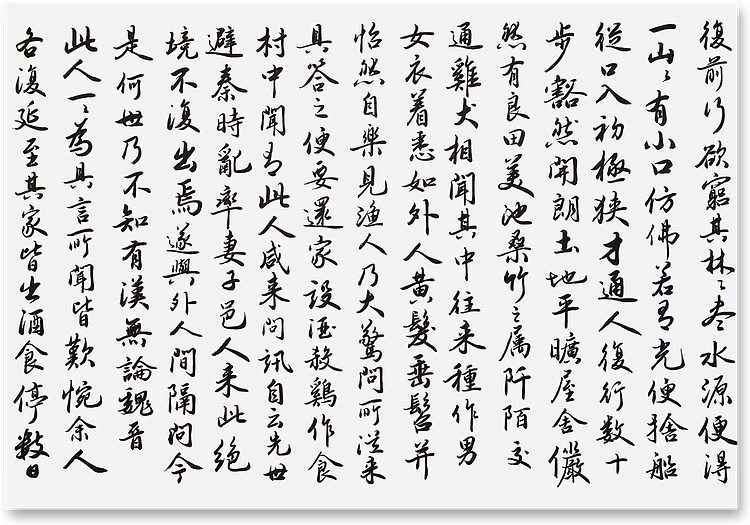 復前行欲窮其林〻盡水源便得
一山〻有小口仿佛若有光便捨船
從口入初極狹才通人復行数十
步豁然開朗土地平曠屋舍儼
然有良田美池桑竹之属阡陌交
通雞犬相聞其中往来種作男
女衣着悉如外人黄髮垂髫并
怡然自樂見漁人乃大驚問所從来
具答之便要還家設酒殺鷄作食
村中聞有此人咸来問訊自云先世
避秦時亂率妻子邑人来此絶
境不復出焉遂與外人間隔問今
是何世乃不知有漢無論魏晉
此人一〻為具言所聞皆歎惋余人
各復延至其家皆出酒食停数日